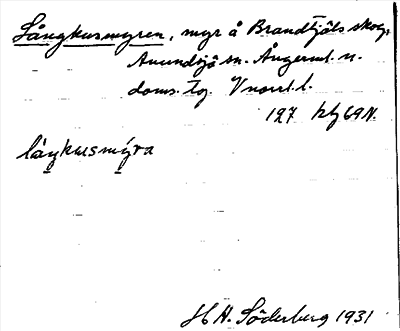 Långkusmyren, myr å Brandtjäls skog,
Anundsjö sn. Ångerml. n.
doms. tg. Vnorrl. l.
127 ktj 69 N.
låŋkusmýra
H A. Söderberg 1931